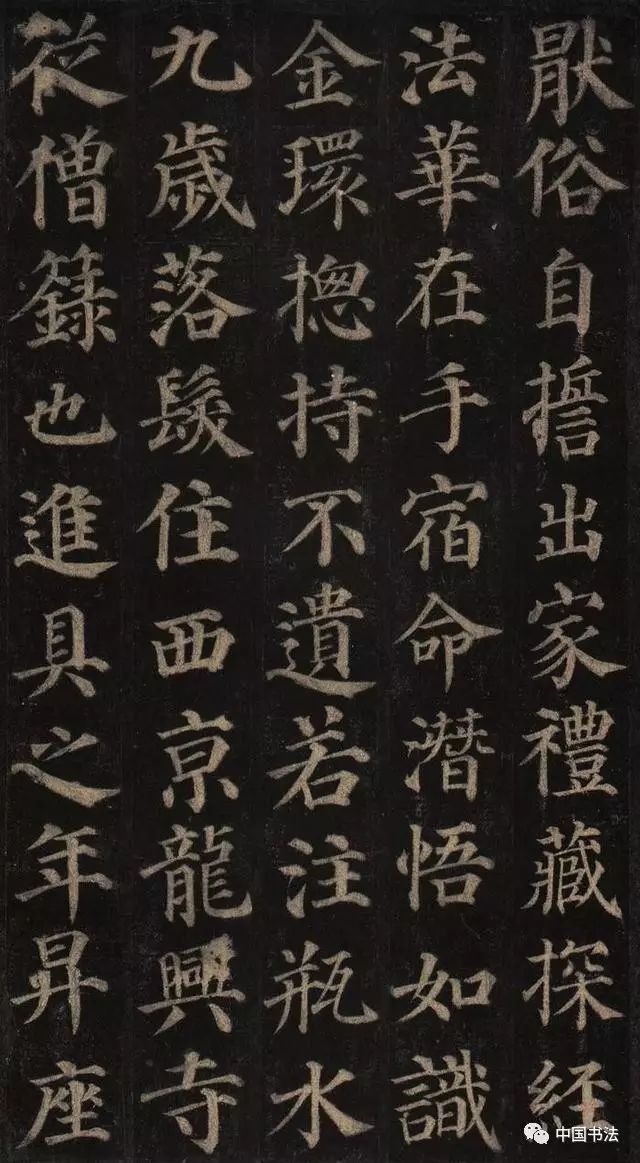 猒俗自誓出家禮藏探經
法華在手宿命潛悟如識
金環揔持不遺若注瓶水
九歲落髮住西京龍興寺
從僧籙也進具之年昇座
中国书法